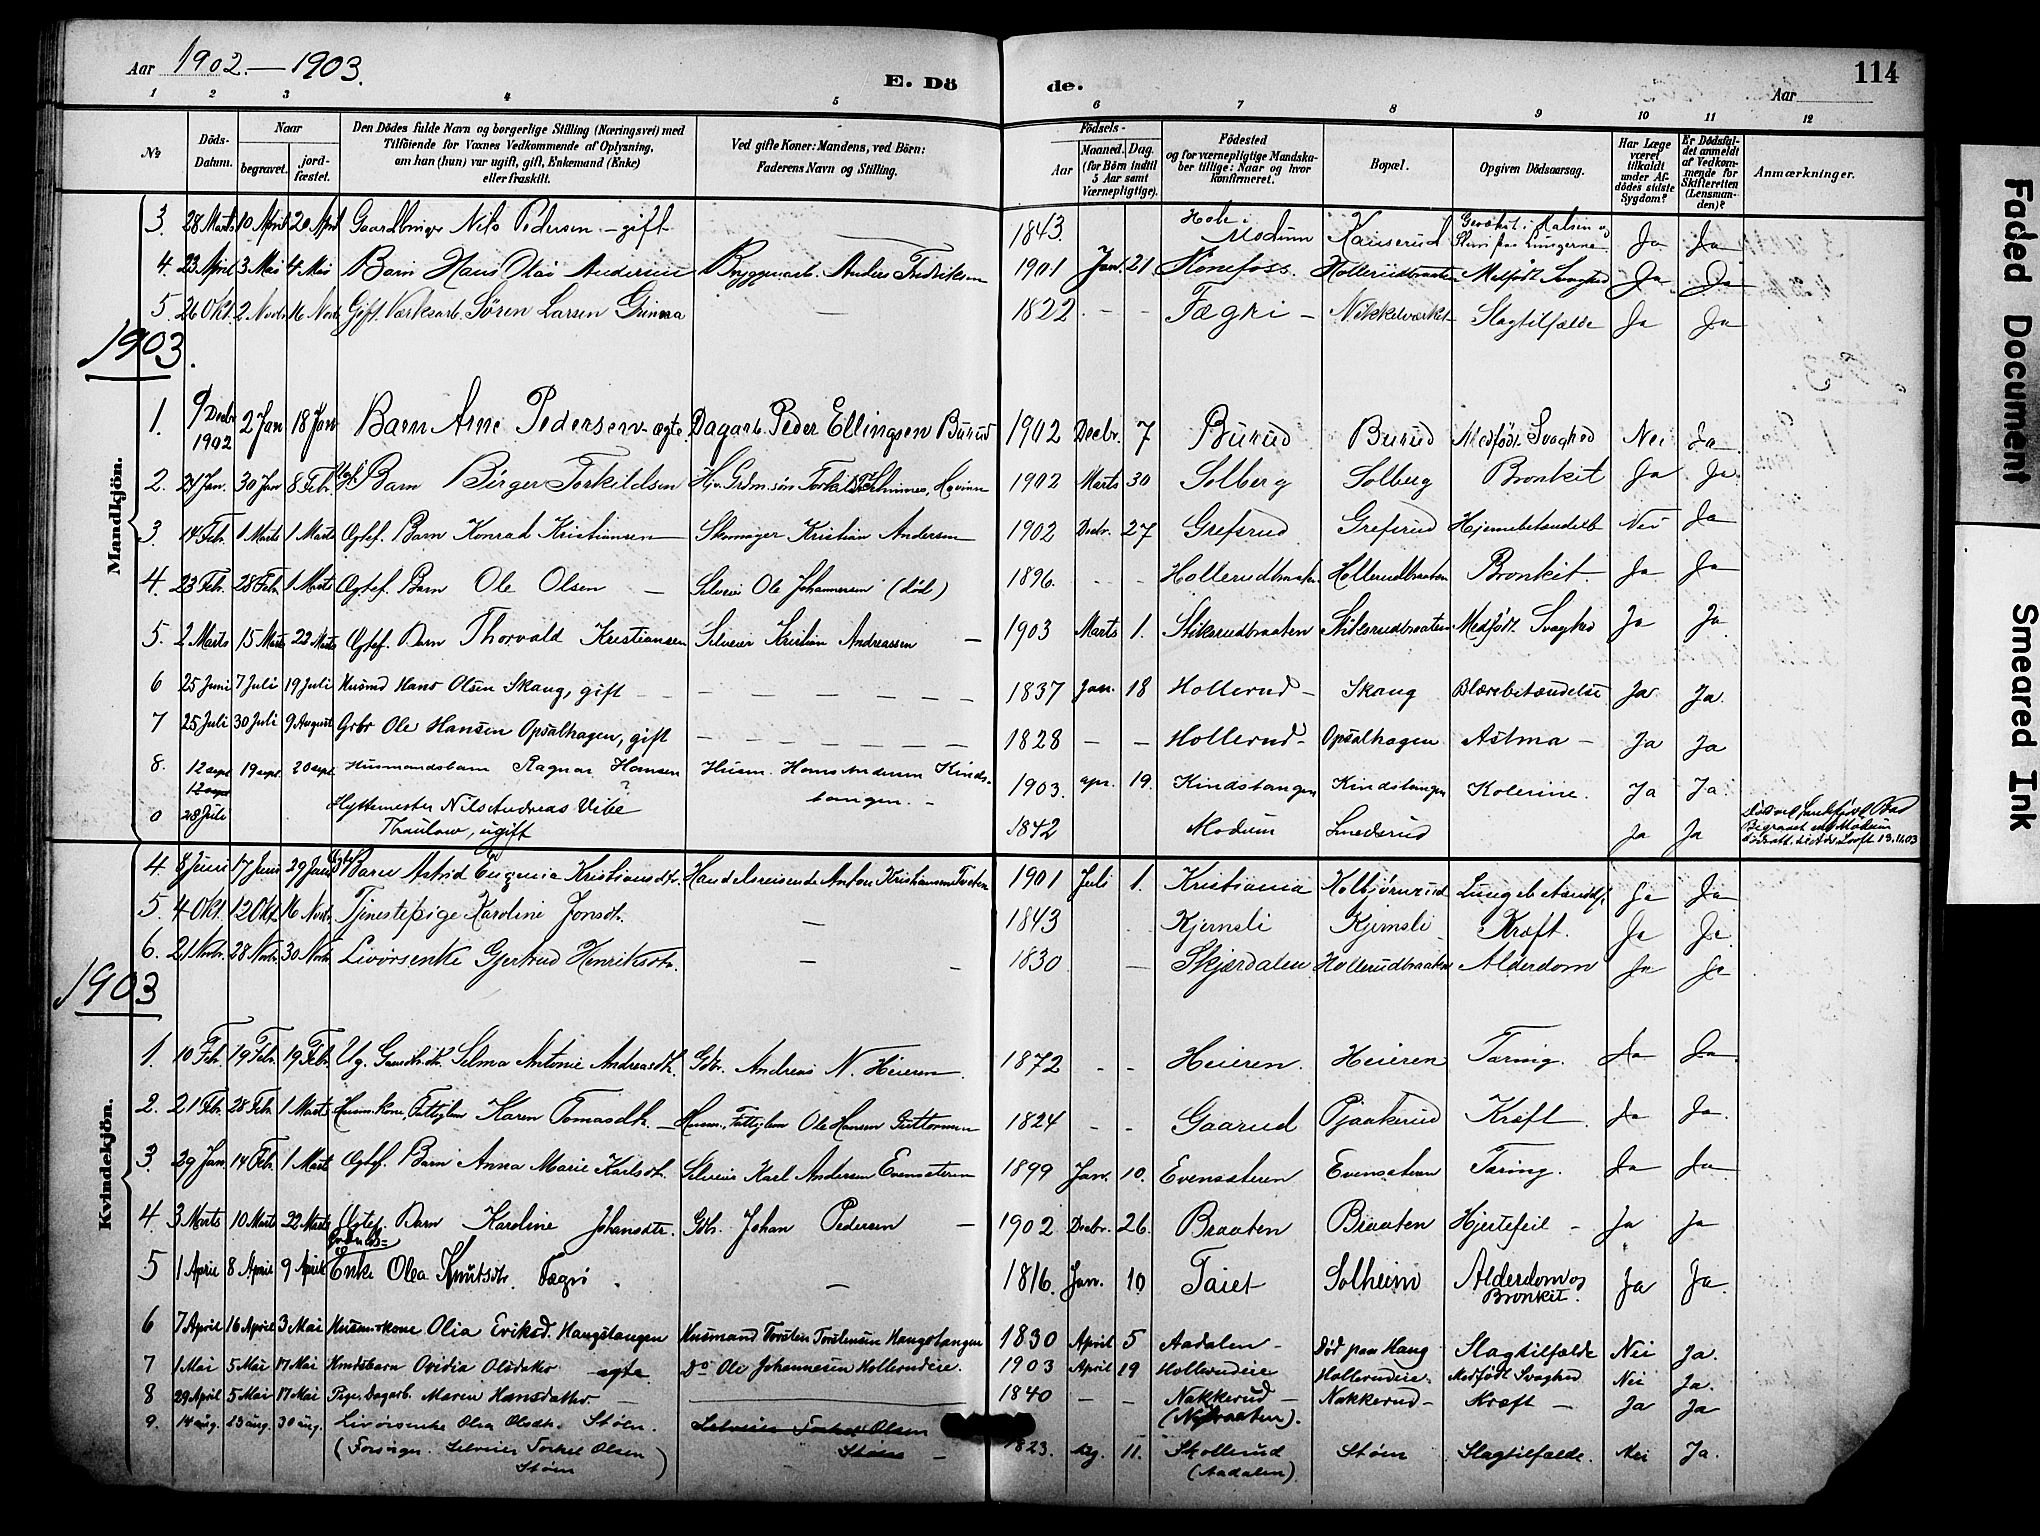 Aar 1902.—1903.
E. Döde.
Aar
114
1 2 3 4 5 6 7 8 9 10 11 12
№
Döds-Datum.
Naar
begravet.
jord-fæstet.
Den Dödes fulde Navn og borgerlige Stilling (Næringsvei) med
Tilföiende for Voxnes Vedkommende af Oplysning,
om han (hun) var ugift, gift, Enkemand (Enke)
eller fraskilt.
Ved gifte Koner: Mandens, ved Börn:
Faderens Navn og Stilling.
Födsels-
Aar
Maaned. Dag.
(for Börn indtil
5 Aar samt
Værnepligtige).
Födested
og for værnepligtige Mandska-
ber tillige: Naar og hvor
konfirmeret.
Bopæl.
Opgiven Dödsaarsag.
Har Læge
været
tilkaldt
under Af-
dödes sidste
Sygdom?
Er Dödsfal-
det anmeldt
af Vedkom-
mende for
Skifteretten
(Lensman-
den)?
Anmærkninger.
Mandkjön.
3. 28 Marts 10 April 20 April Gaardbruger Nils Pedersen - gift 1843. Modum Ja Ja
4. 23 April 3 Mai 4 Mai Barn Hans Olai Andersen Anders Fredriksen 1901 Jan. 21 Hönefoss. Hollerudbraaten Medfödt Svaghed Ja Ja
5. 26 Okt. 2 Novbr 16 Novbr Gift Værksarb. Sören Larsen — 1822 - - Nikkelværket Slagtilfælde Ja Ja
1903.
1. 9 Decbr 1902 2 Jan 18 Jan Barn Arne Pedersen ægte Dagarb. Peder Ellingsen Burud 1902 Decbr. 7 Burud Burud Medfödt Svaghed Nei Ja
2. 21 Jan. 30 Jan 8 Febr. Barn Birger Torkildsen 1902 Marts 30 Solberg Solberg Bronkit Ja Ja
3. 14 Febr. 1 Marts 1 Marts Ægtef. Barn Konrad Kristiansen Skomager Kristian Andersen 1902 Decbr. 27 Grefsrud Grefsrud Nei Ja
4. 23 Febr. 28 Febr. 1 Marts Ægtef. Barn Ole Olsen — Selveier Ole Johannesen (död) 1896 - - Hollerudbraaten Hollerudbraaten Bronkit. Ja Ja
5. 2 Marts 15 Marts 22 Marts Ægtef. Barn Thorvald Kristiansen Selveier Kristian Andreassen — 1903 Marts 1. Stiksrudbraaten Stiksrudbraaten Medfödt Svaghed Ja Ja
6 25 Juni 7 Juli 19 Juli Husmd Hans Olsen Skaug, gift 1837 Jan. 18 Hollerud - Skaug Blærebetændelse Ja Ja.
7 25 Juli 30 Juli 9 August Grbr Ole Hansen Opsalhagen, gift 1828 — — Hollerud - Opsalhagen Astma — Ja Ja
8. 12 sept 19 sept. 20 sept. Husmandsbarn Ragnar Hansen Husm. Hans Andersen Kinds-
tangen. 1903. apr. 19. Kindstangen Kindstangen Kolerine. Ja Ja.
0 28 Juli Hyttemester Nils Andreas Vibe
Thaulow, ugift 1842 Modum Snedsrud Ja Ja
Kvindekjön.
4 8 Juni 17 Juni 29 Juni Barn Astrid Eugenia Kristiansdtr. Handelsreisende Anton Kristiansen 1901 Juli 1. Kristiania Kolbjörnrud Ja Ja
5. 4 Okt. 12 Okt. 16 Novbr. Tjenestepige Karoline Jonsdtr. — 1843 Kjemsli Kjemsli Kræft. Ja Ja
6. 21 Novbr. 28 Novbr. 30 Novbr. Gjertrud Henriksdtr. — 1830 — Skjærdalen Hollerudbraaten Alderdom Ja Ja
1903
1. 10 Febr. 19 Febr. 19 Febr. Ug. Selma Antonie Andreasdtr. Gdbr. Andreas N. Heieren. 1872 - - Heieren. Heieren Tæring. Ja Ja
2. 21 Febr. 28 Febr. 1 Marts Husm.kone, Fattiglem Karen Tomasdtr. — Husm., Fattiglem Ole Hansen 1824 - - Gaarud Kræft. Ja Ja
3. 29 Jan. 14 Febr. 1 Marts Ægtef. Barn Anna Marie Karlsdtr. Selveier Karl Andersen Evensæteren 1899 Jan. 10. Evensæteren Evensæteren Tæring. Ja Ja
4. 3 Marts 10 Marts 22 Marts Ægtef. Barn Karoline Johansdtr. Gdbr. Johan Pedersen — 1902 Decbr. 26. Braaten Braaten Hjertefeil - Ja Ja
5 1 April 8 April 9 April Enke Olea Knutsdtr. — 1816 Jan. 10 Solheim Alderdom og
Bronkit. Ja Ja.
6 7 April 16 April 3 Mai Husm.kone Olia Eriksd. Haugstangen Husmand Torsten Torstensen Haugstangen 1830 April 5 Aadalen - Död paa Haug Slagtilfælde Nei Ja.
7 1 Mai 5 Mai 17 Mai Husdsbarn Ovidia Olsdatter - ægte Do Ole Johannesen Hollerudeie. 1903 April 19 Hollerudeie Hollerudeie. Medfödt Svaghed Nei Ja.
8 29 April 5 Mai 17 Mai Pige, Dagarb. Maren Hansdatter. — 1840 Nakkerud —
(Nybraaten). Nakkerud - Kræft — Ja Ja
9. 14 aug. 23 aug. 30 aug. Olea Olsdtr. Stöen. Selveier Torkel Olsen
Stöen —
(Forsörger. Selveier Torkel Olsen
Stöen) 1823. Aug. 11. Skollerud
(Aadalen). Stöen Slagtilfælde. Nei Ja.
Faded Document
Smeared Ink